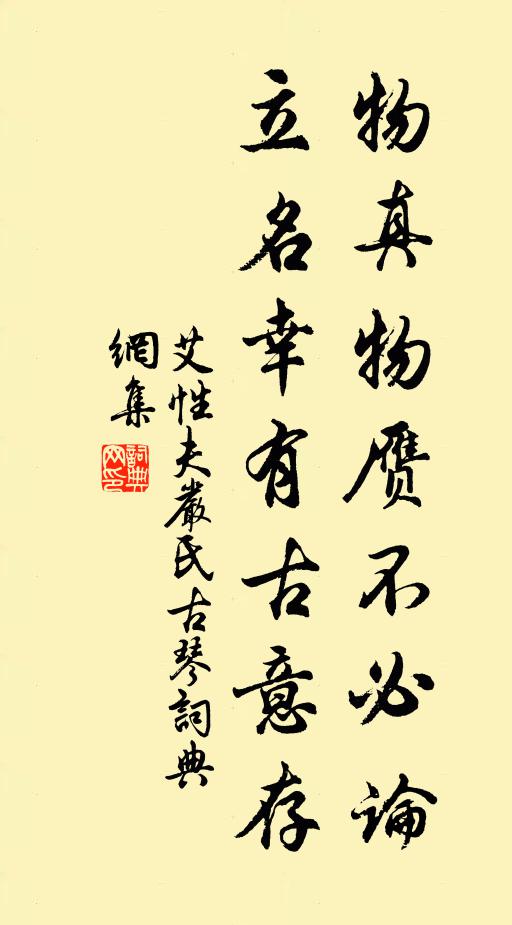 物真物赝不必論
立名幸有古意存
艾性夫嚴氏古琴詞典
網集
詞典网印